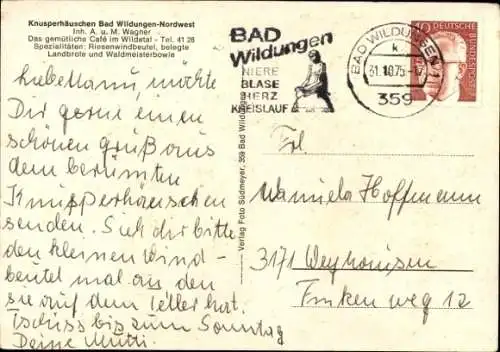 Knusperhäuschen Bad Wildungen-Nordwest
Inh. A. u. M. Wagner
Das gemütliche Café im Wildetal - Tel. 41 26
Spezialitäten: Riesenwindbeutel, belegte
Landbrote und Waldmeisterbowle
liebe Manu, möchte
Dir gerne einen
schönen Gruß aus
dem berümten
Knusperhäuschen
senden. Sieh dir bitte
den kleinen Wind-
beutel mal an den
sie auf dem Teller hat.
Tschüss bis zum Sonntag
Deine Mutti.
Verlag Foto Südmeyer, 359 Bad Wildungen
BAD
Wildungen
NIERE
BLASE
HERZ
KREISLAUF
BAD WILDUNGEN 1
k
31.10.75-17
359
40
DEUTSCHE
BUNDESPOST
Frl.
Manuela Hoffmann
3171 Weyhausen
Finkenweg 12